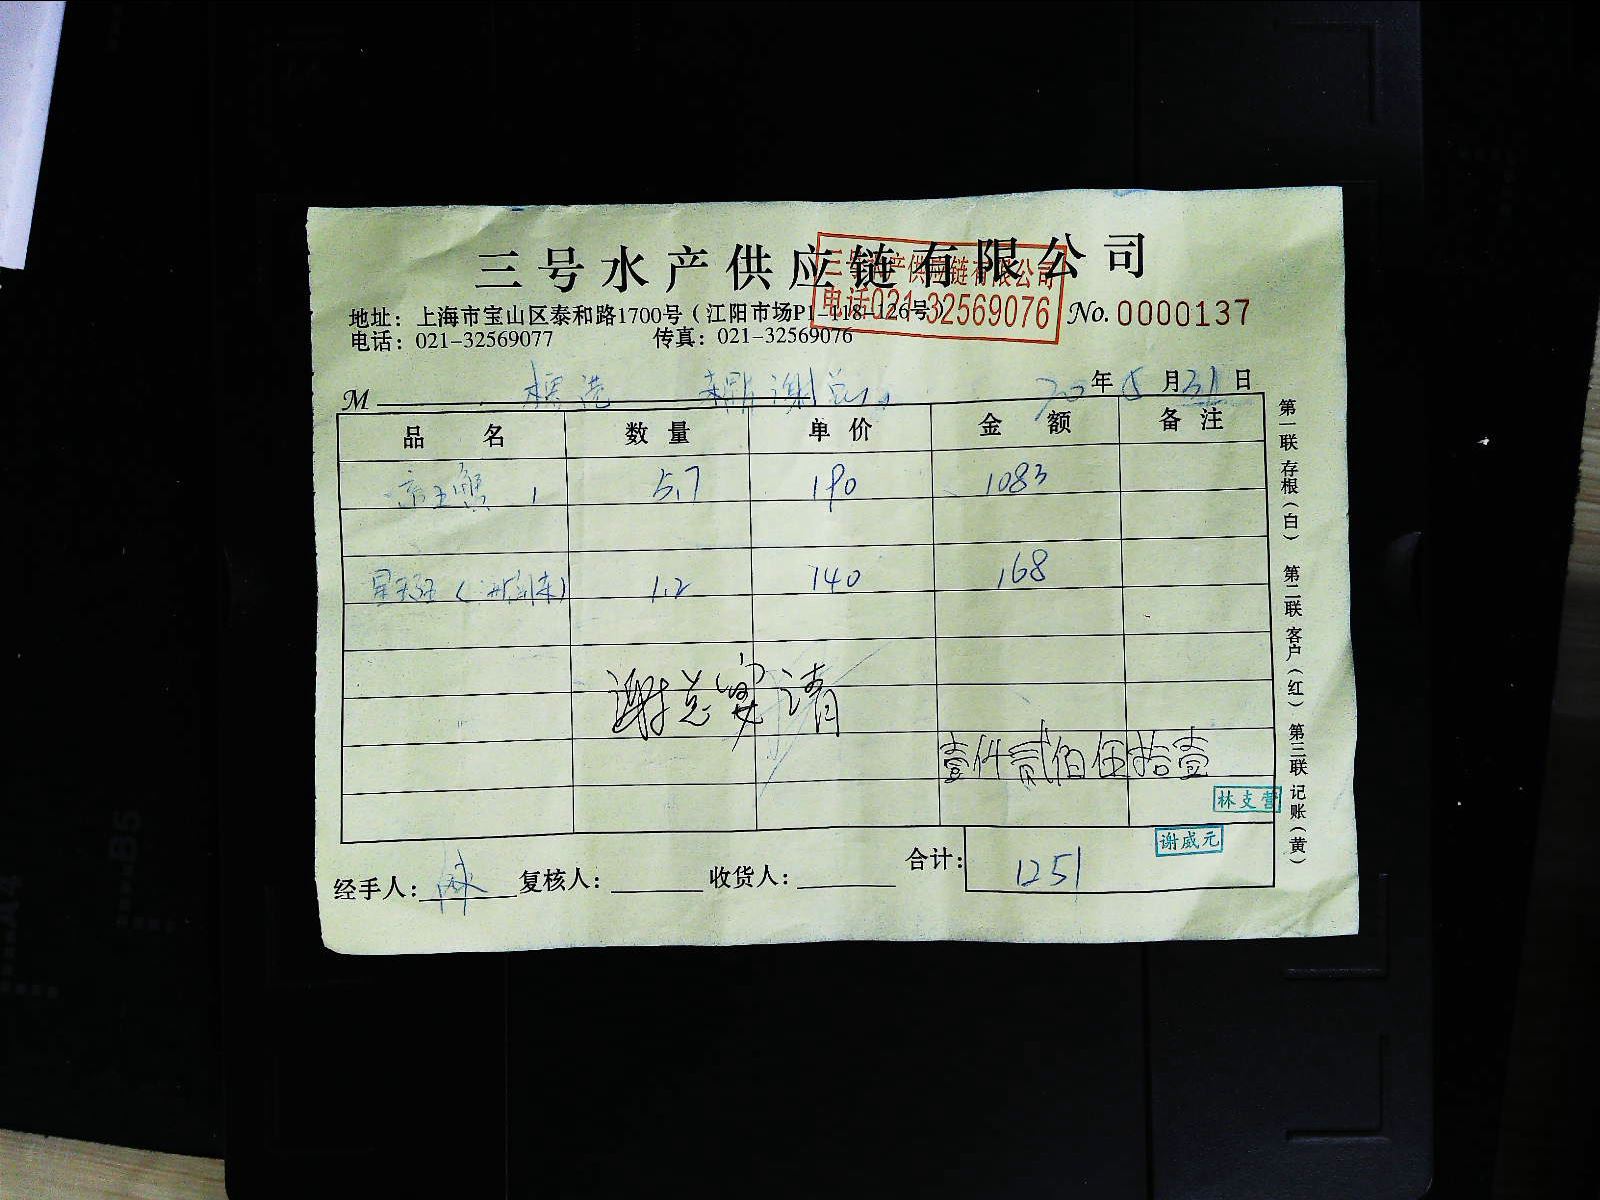 三号水产供应链有限公司
三号水产供应链有限公司
电话021-32569076
地址：上海市宝山区泰和路1700号（江阳市场P1-118-126号）
No.0000137
电话：021-32569077 传真：021-32569076
M 谢总 20年5月31日
品名 数量 单价 金额 备注
帝王蟹 1 5.7 190 1083
星斑 1.2 140 168
谢总宴请
壹仟贰佰伍拾壹
林支营
谢威元
合计：1251
经手人：林 复核人： 收货人：
第一联 存根（白） 第二联 客户（红） 第三联 记账（黄）